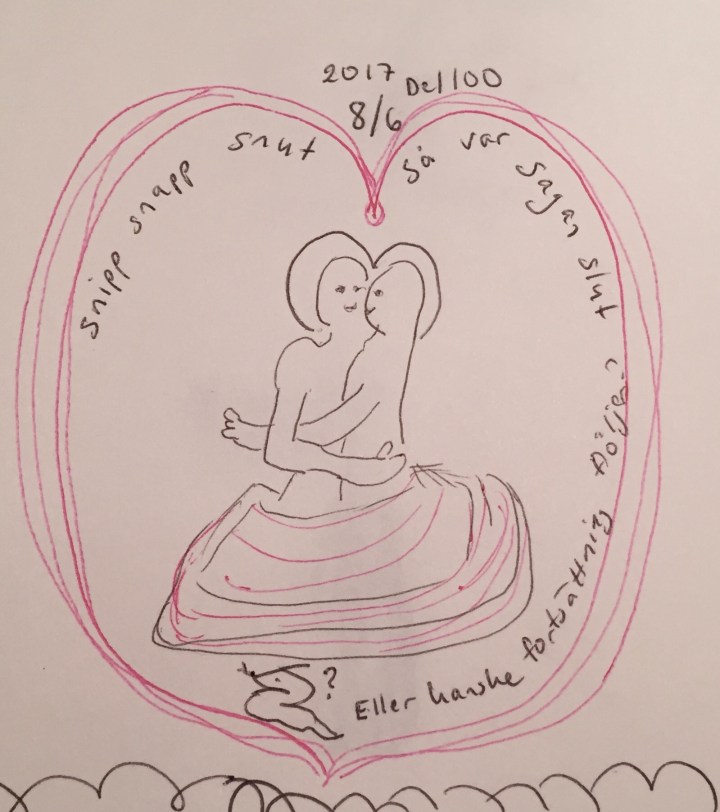 2017 Del 100
8/6
snipp snapp snut
så var sagan slut
Eller kanske fortsättning följer
?